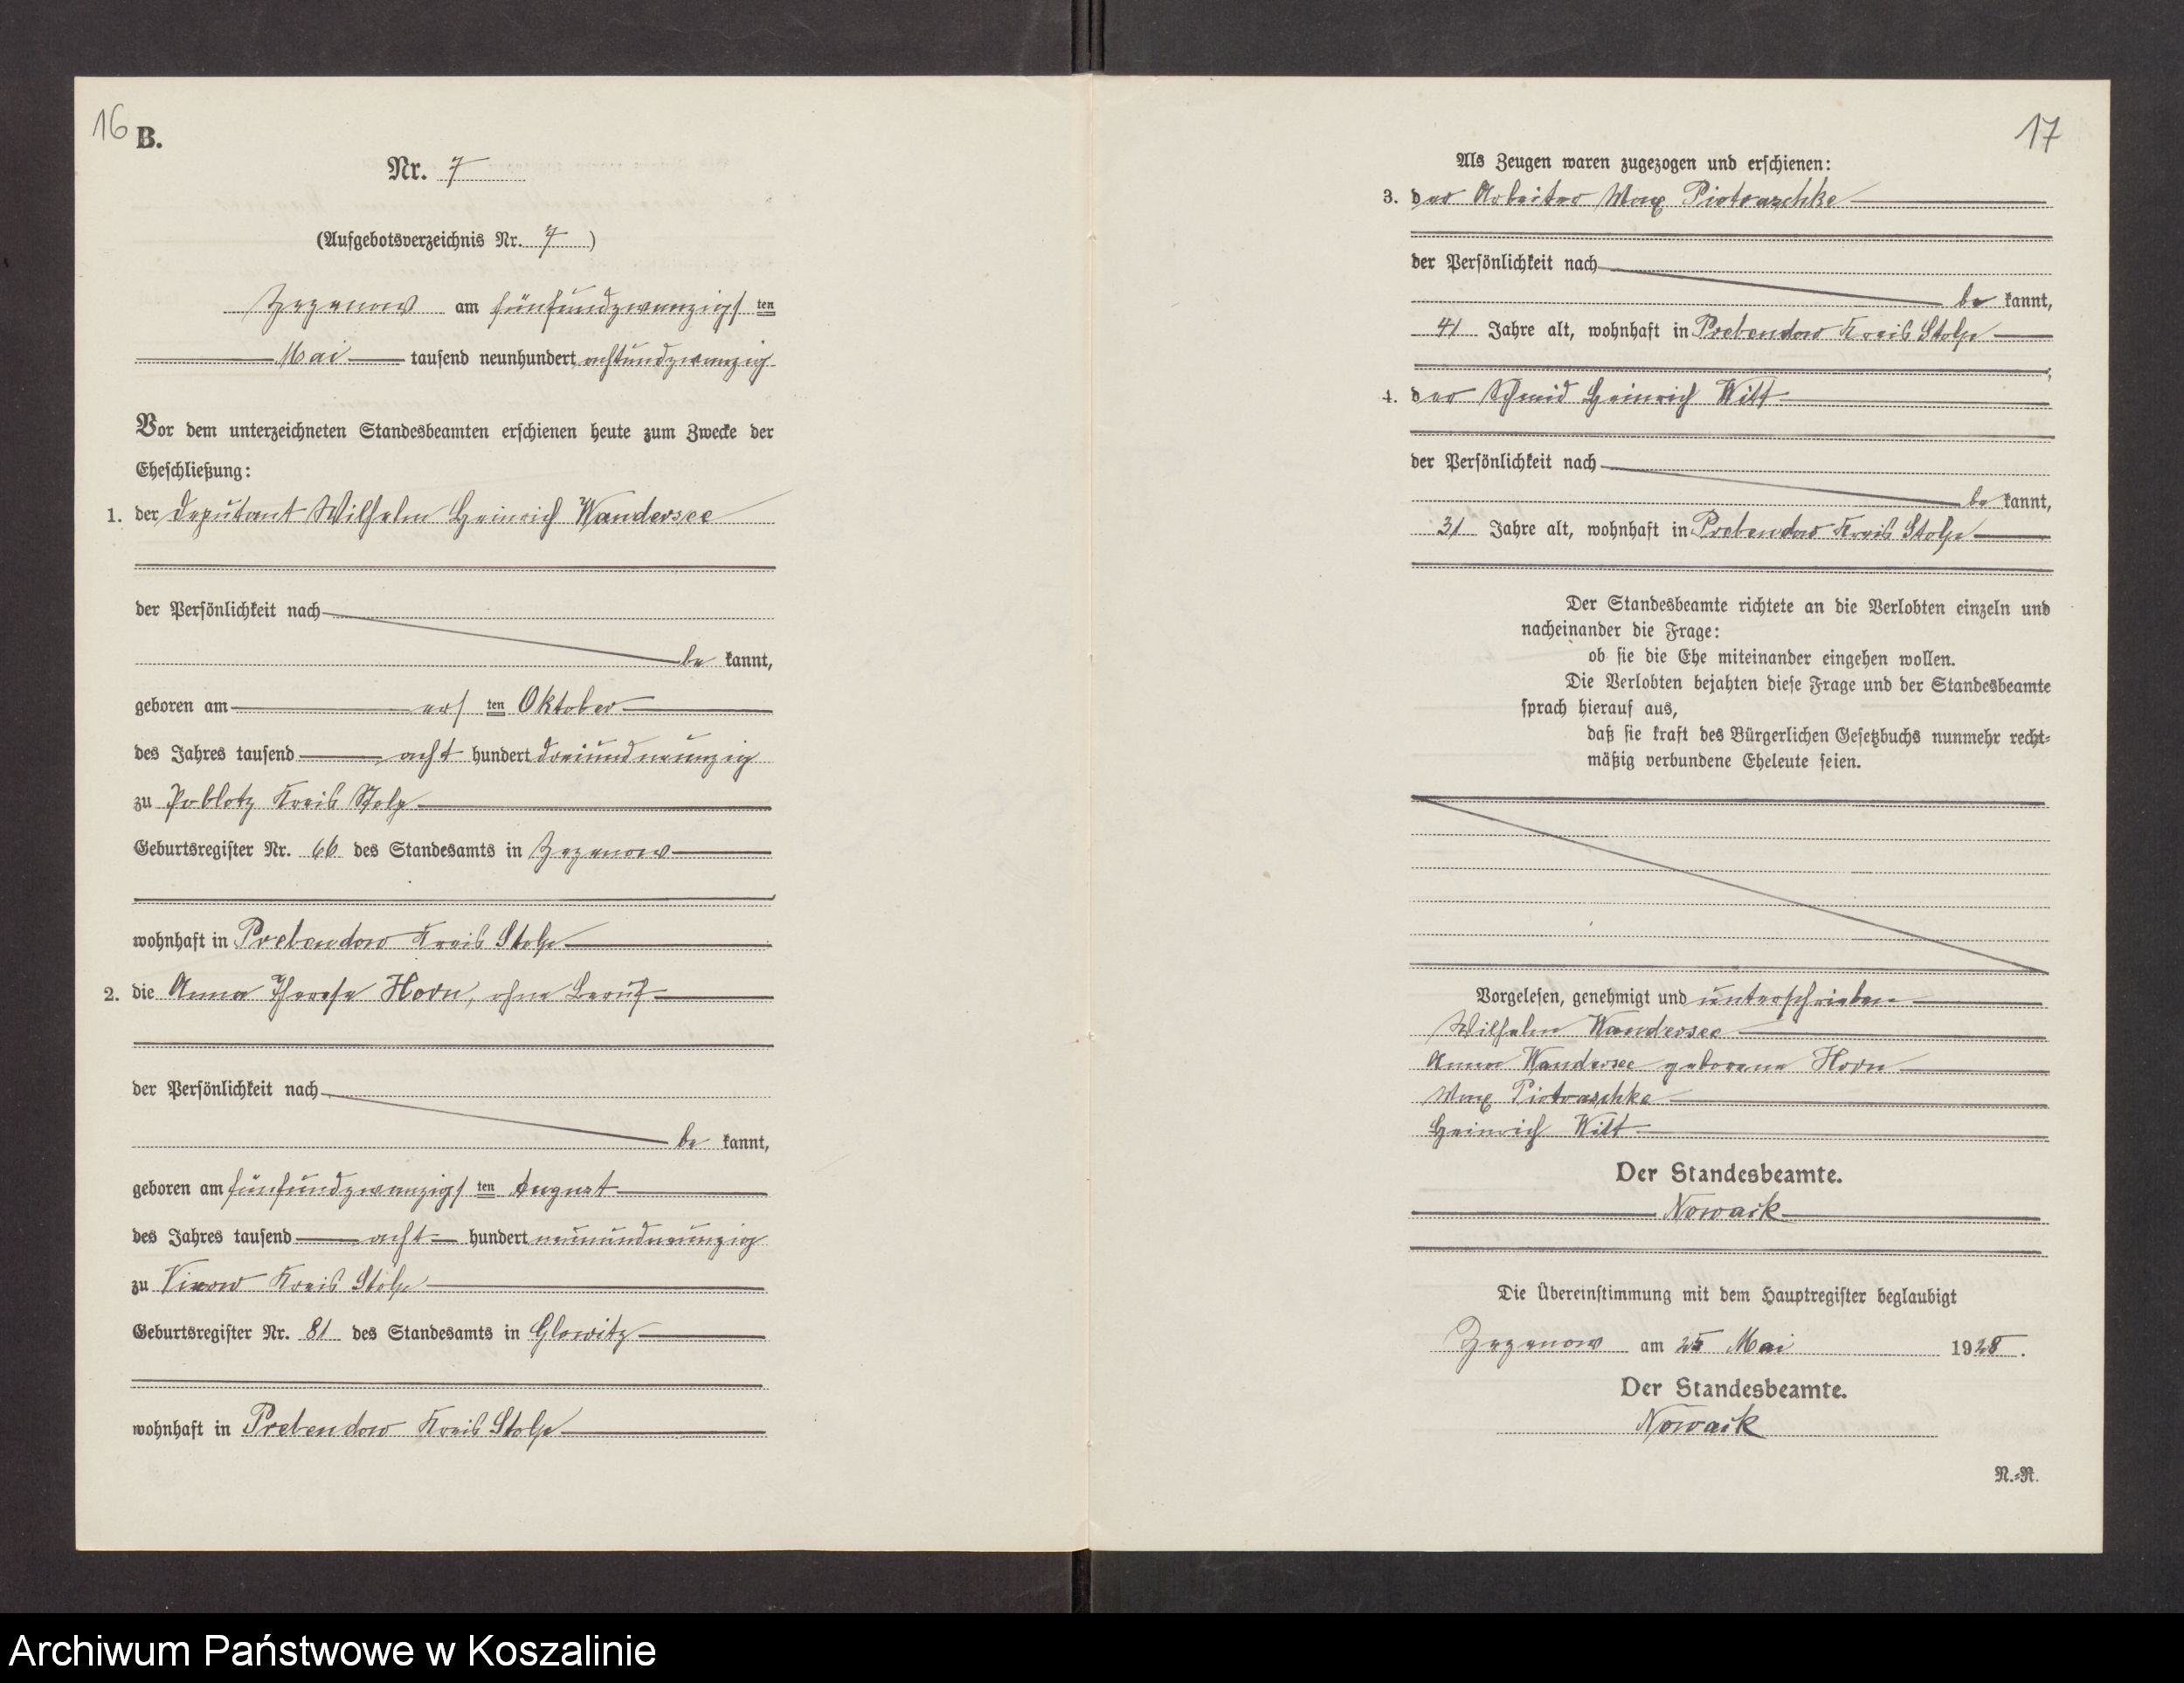 16
B.
Nr. 7
(Aufgebotsverzeichnis Nr. 7)
Zezenow am fünfundzwanzigsten
Mai tausend neunhundert achtundzwanzig
Vor dem unterzeichneten Standesbeamten erschienen heute zum Zwecke der
Eheschließung:
1. der Deputant Wilhelm Heinrich Wandersee
der Persönlichkeit nach
be kannt,
geboren am ersten Oktober
des Jahres tausend acht hundert dreiundneunzig
zu Poblotz Kreis Stolp
Geburtsregister Nr. 66 des Standesamts in Zezenow
wohnhaft in Prebendow Kreis Stolp
2. die Anna Therese Horn, ohne Beruf
der Persönlichkeit nach
be kannt,
geboren am fünfundzwanzigsten August
des Jahres tausend acht hundert neunundneunzig
zu Vixow Kreis Stolp
Geburtsregister Nr. 81 des Standesamts in Glowitz
wohnhaft in Prebendow Kreis Stolp
17
Als Zeugen waren zugezogen und erschienen:
3. der Arbeiter Max Piotraschke
der Persönlichkeit nach
be kannt,
41 Jahre alt, wohnhaft in Prebendow Kreis Stolp
;
4. der Schmid Heinrich Witt
der Persönlichkeit nach
be kannt,
31 Jahre alt, wohnhaft in Prebendow Kreis Stolp
Der Standesbeamte richtete an die Verlobten einzeln und
nacheinander die Frage:
ob sie die Ehe miteinander eingehen wollen.
Die Verlobten bejahten diese Frage und der Standesbeamte
sprach hierauf aus,
daß sie kraft des Bürgerlichen Gesetzbuchs nunmehr recht-
mäßig verbundene Eheleute seien.
Vorgelesen, genehmigt und unterschrieben
Wilhelm Wandersee
Anna Wandersee geborene Horn
Max Piotraschke
Heinrich Witt
Der Standesbeamte.
Nowack
Die Übereinstimmung mit dem Hauptregister beglaubigt
Zezenow am 25 Mai 1928.
Der Standesbeamte.
Nowack
N.-R.
Archiwum Państwowe w Koszalinie